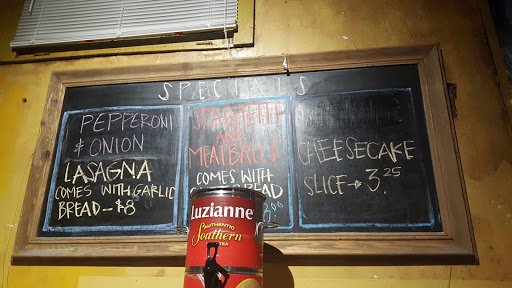 SPECIALS
PEPPERONI
& ONION
LASAGNA
COMES WITH GARLIC
BREAD - $8
SPAGHETTI
AND
MEATBALLS
COMES WITH
BREAD
CHEESECAKE
SLICE → 3.25
Luzianne
AUTHENTIC
Southern
TEA